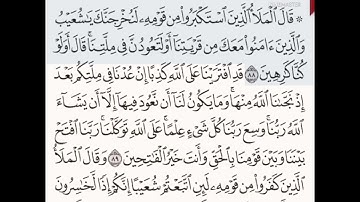 ۞ قَالَ ٱلْمَلَأُ ٱلَّذِينَ ٱسْتَكْبَرُوا۟ مِن قَوْمِهِۦ لَنُخْرِجَنَّكَ يَٰشُعَيْبُ
وَٱلَّذِينَ ءَامَنُوا۟ مَعَكَ مِن قَرْيَتِنَآ أَوْ لَتَعُودُنَّ فِى مِلَّتِنَا ۚ قَالَ أَوَلَوْ
كُنَّا كَٰرِهِينَ ٨٨ قَدِ ٱفْتَرَيْنَا عَلَى ٱللَّهِ كَذِبًا إِنْ عُدْنَا فِى مِلَّتِكُم بَعْدَ
إِذْ نَجَّىٰنَا ٱللَّهُ مِنْهَا ۚ وَمَا يَكُونُ لَنَآ أَن نَّعُودَ فِيهَآ إِلَّآ أَن يَشَآءَ
ٱللَّهُ رَبُّنَا ۚ وَسِعَ رَبُّنَا كُلَّ شَىْءٍ عِلْمًا ۚ عَلَى ٱللَّهِ تَوَكَّلْنَا ۚ رَبَّنَا ٱفْتَحْ
بَيْنَنَا وَبَيْنَ قَوْمِنَا بِٱلْحَقِّ وَأَنتَ خَيْرُ ٱلْفَٰتِحِينَ ٨٩ وَقَالَ ٱلْمَلَأُ
ٱلَّذِينَ كَفَرُوا۟ مِن قَوْمِهِۦ لَئِنِ ٱتَّبَعْتُمْ شُعَيْبًا إِنَّكُمْ إِذًا لَّخَٰسِرُونَ